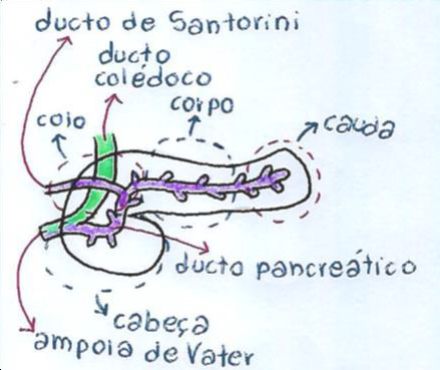 ducto de Santorini
ducto
colédoco
corpo
colo
cauda
ducto pancreático
cabeça
ampola de Vater